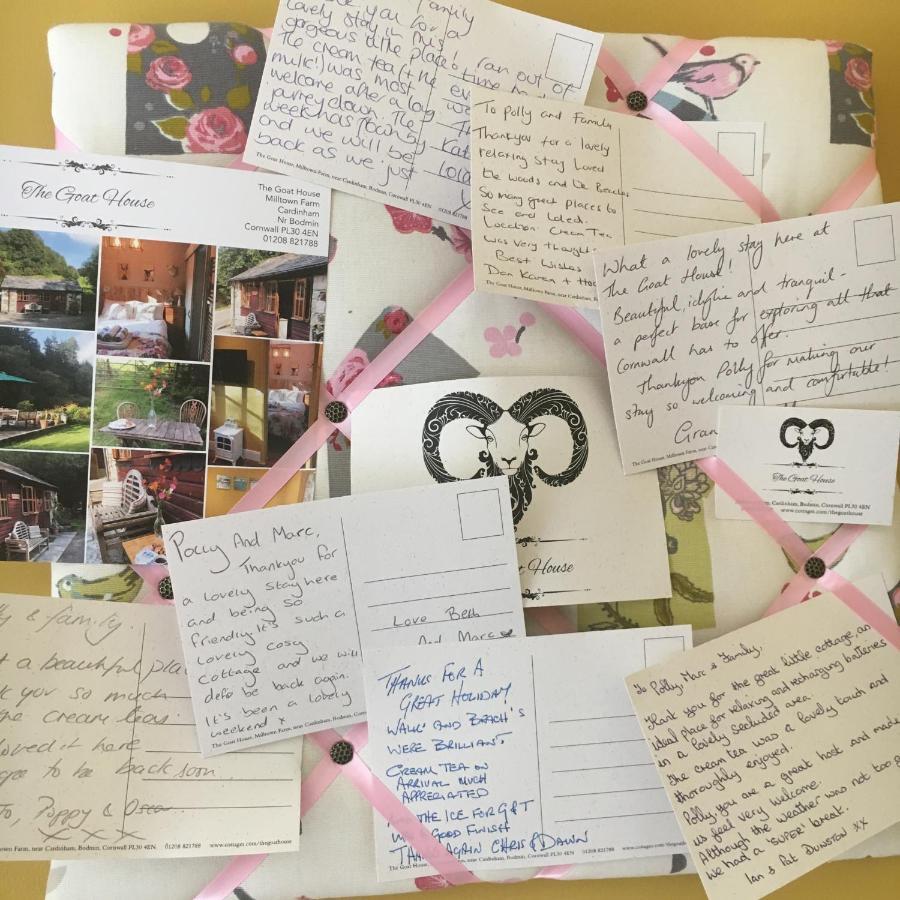 you for a
Family
lovely stay in this
gorgeous little place! I ran out of
The cream tea (+ the
milk!) was most
welcome after a long
journey down. The
week has flown by
and we will be
back as we just
The Goat House, Milltown Farm, near Cardinham, Bodmin, Cornwall PL30 4EN. 01208 821788
To Polly and Family
Thankyou for a lovely
relaxing stay Loved
the woods and the Beaches
So many great places to
See and Loted.
Location Cream Tea
was very thought-
Best Wishes
Dan Karen +
The Goat House, Milltown Farm, near Cardinham, Bodmin,
The Goat House
The Goat House
Milltown Farm
Cardinham
Nr Bodmin
Cornwall PL30 4EN
01208 821788
What a lovely stay here at
The Goat House!
Beautiful, idyllic and tranquil -
a perfect base for exploring all that
Cornwall has to offer.
Thankyou Polly for making our
stay so welcoming and comfortable!
Gran
The Goat House, Milltown Farm, near
The Goat House
near Cardinham, Bodmin, Cornwall PL30 4EN
www.cottages.com/thegoathouse
House
Polly And Marc,
Thankyou for
a lovely stay here
and being so
friendly it's such a
lovely cosy
cottage and we will
defo be back again.
It's been a lovely
weekend x
Love Beth
And Marc
The Goat House, Milltown Farm, near Cardinham, Bodmin, Cor
& family.
a beautiful pla
you so much
the cream teas.
loved it here
to be back soon.
Poppy & Oscar
x x x
Farm, near Cardinham, Bodmin, Cornwall PL30 4EN. 01208 821788 www.cottages.com/thegoathouse
THANKS FOR A
GREAT HOLIDAY
WALK' AND BEACH'S
WERE BRILLIANT
CREAM TEA ON
ARRIVAL MUCH
APPRECIATED
THE ICE FOR G&T
GOOD FINISH
THANKS AGAIN CHRIS & DAWN
The Goat House, Farm, near Cardinham, Bodmin, Cornwall PL30 4EN. 01208 821788 www.cottages.com/thegoathouse
To Polly, Marc & Family.
Thank you for the great little cottage, an
ideal place for relaxing and recharging batteries
in a lovely secluded area.
The cream tea was a lovely touch and
thoroughly enjoyed.
Polly you are a great host and made
us feel very welcome.
Although the weather was not too go
we had a 'SUPER' break.
Ian & Pat DUNSTON xx